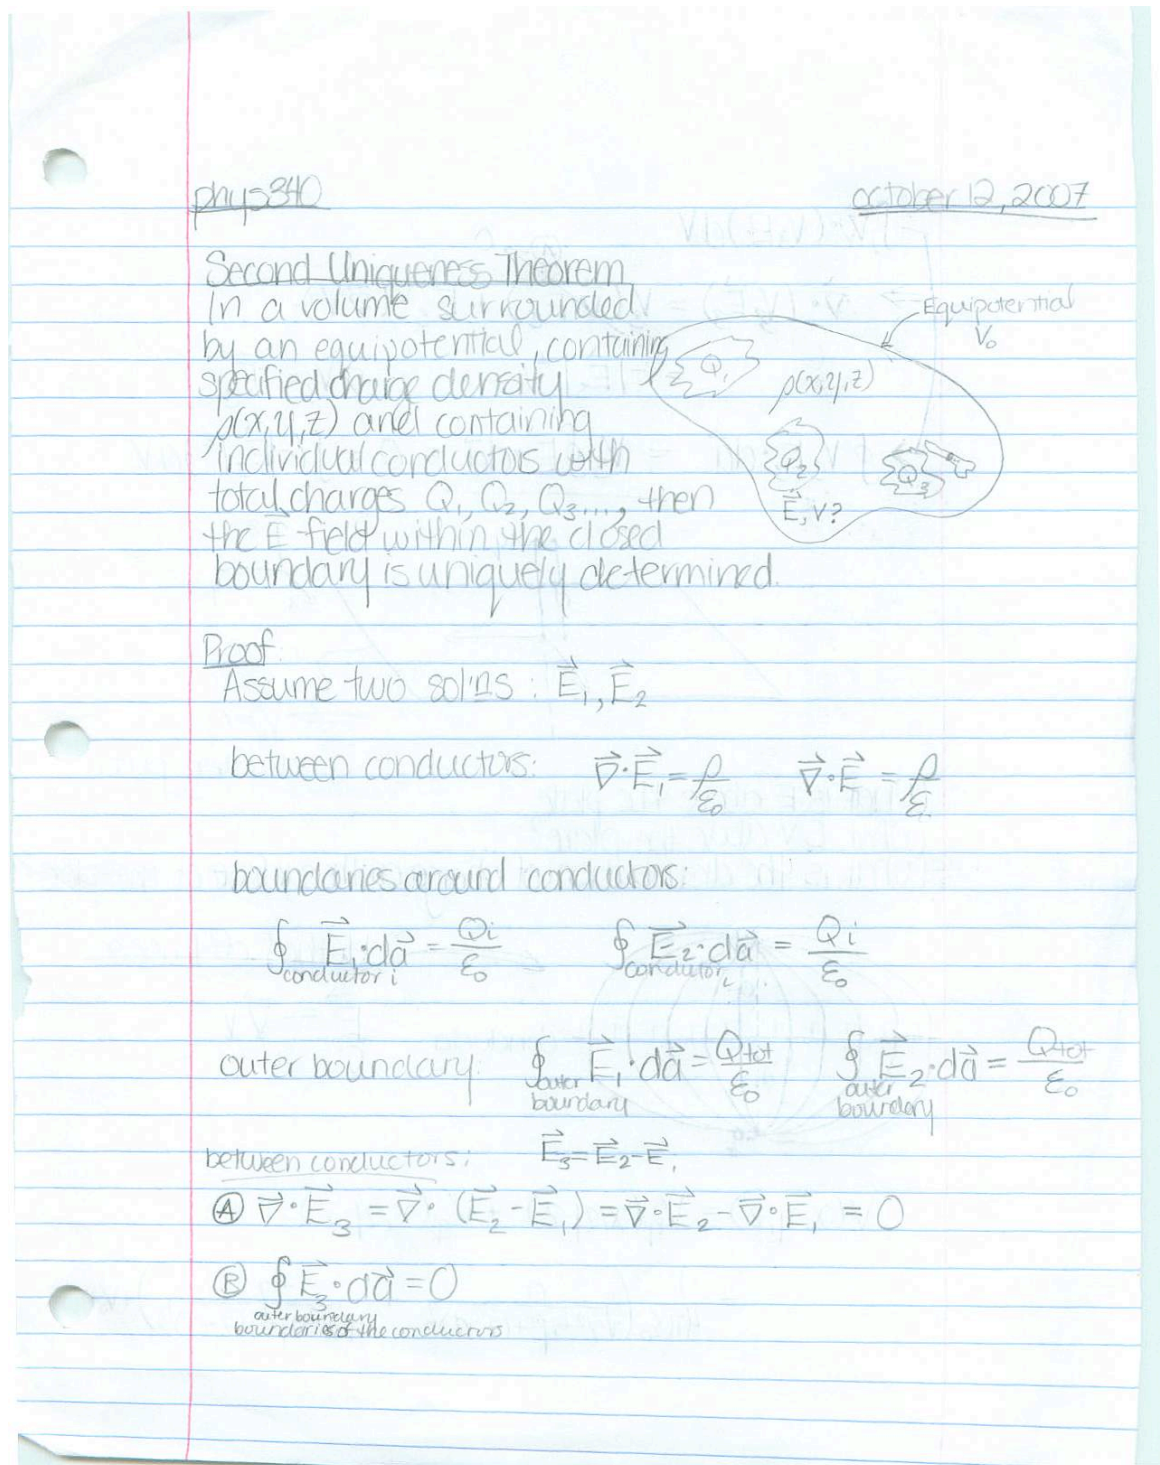 phys340
october 12, 2007
Second Uniqueness Theorem
In a volume surrounded
by an equipotential, containing
specified charge density
ρ(x,y,z) and containing
individual conductors with
total charges Q₁, Q₂, Q₃..., then
the E-field within the closed
boundary is uniquely determined.
Equipotential
V₀
Q₁
ρ(x,y,z)
Q₂
Q₃
E⃗, V?
Proof
Assume two sol'ns: E⃗₁, E⃗₂
between conductors: ∇⃗·E⃗₁ = ρ/ε₀ ∇⃗·E⃗ = ρ/ε
boundaries around conductors:
∮ E⃗₁·da⃗ = Qi/ε₀ ∮ E⃗₂·da⃗ = Qi/ε₀
conductor i conductor i
outer boundary: ∮ E⃗₁·da⃗ = Qtot/ε₀ ∮ E⃗₂·da⃗ = Qtot/ε₀
outer boundary outer boundary
between conductors: E⃗₃ = E⃗₂ - E⃗₁
Ⓐ ∇⃗·E⃗₃ = ∇⃗·(E⃗₂ - E⃗₁) = ∇⃗·E⃗₂ - ∇⃗·E⃗₁ = 0
Ⓑ ∮ E⃗₃·da⃗ = 0
outer boundary
boundaries of the conductors